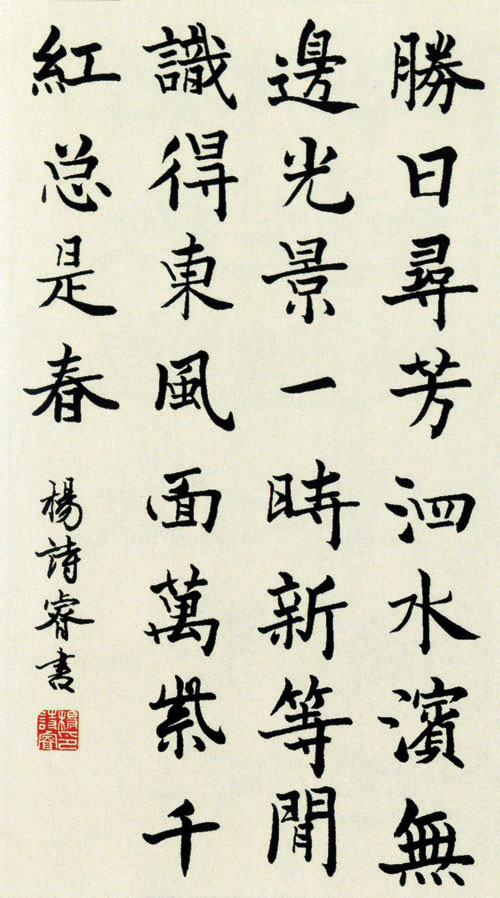 勝日尋芳泗水濱無
邊光景一時新等閒
識得東風面萬紫千
紅总是春
楊詩睿書
楊詩睿印